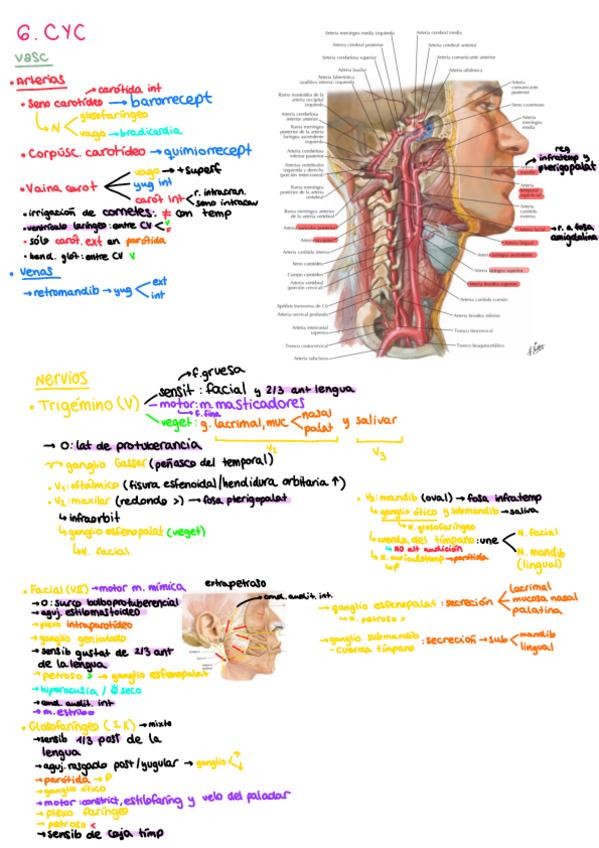 6. CYC
vasc
• Arterias
• Seno carotídeo → barorrecept
carótida int
N
glosofaríngeo
vago → bradicardia
• Corpúsc. carotídeo → quimiorrecept
• Vaina carot
vago → + superf
yug int
carót int
r. intracran.
seno intracav
• irrigación de cornetes: ≠ con temp
• ventrículo laríngeo: entre CV
• sólo carót. ext en parótida
• hend. glót: entre CV V
• Venas
→ retromandib → yug
ext
int
Arteria meníngea media izquierda
Arteria cerebral media
Arteria cerebral posterior
Arteria cerebral anterior
Arteria cerebelosa superior
Arteria comunicante anterior
Arteria basilar
Arteria oftálmica
Arteria laberíntica (auditiva interna) izquierda
Arteria comunicante posterior
Rama mastoidea de la arteria occipital izquierda
Seno cavernoso
Arteria cerebelosa inferior anterior
Arteria meníngea media
Rama meníngea posterior de la arteria faríngea ascendente izquierda
Arteria cerebelosa inferior posterior
Arterias vertebrales izquierda y derecha (porción intracraneal)
reg infratemp y pterigopalat
Rama meníngea posterior
Rama meníngea anterior de la arteria vertebral
Arteria carótida externa
Arteria facial
→ r. a fosa amigdalina
Arteria lingual
Arteria carótida interna
Arteria faríngea ascendente
Seno carotídeo
Arteria laríngea superior
Cuerpo carotídeo
Arteria tiroidea superior
Arteria vertebral (porción cervical)
Arteria carótida común
Apófisis transversa de C6
Arteria tiroidea inferior
Arteria cervical profunda
Arteria intercostal superior
Tronco tirocervical
Tronco costocervical
Tronco braquiocefálico
Arteria subclavia
Nervios
• Trigémino (V)
f. gruesa
sensit: facial y 2/3 ant lengua
motor: m. masticadores
f. fina
veget: g. lacrimal, muc
nasal
palat
y salivar
V2
V3
→ O: lat de protuberancia
ganglio Gasser (peñasco del temporal)
• V1: oftálmico (fisura esfenoidal/hendidura orbitaria ↑)
• V2: maxilar (redondo >) → fosa pterigopalat
↳ infraorbit
↳ ganglio esfenopalat (veget)
↳ N. facial
• V3: mandib (oval) → fosa infratemp
↳ ganglio ótico y submandib → saliva
↳ N. glosofaríngeo
↳ cuerda del tímpano: une
N. facial
N. mandib (lingual)
NO alt audición
↳ N. auriculotemp → parótida
↳ P
• Facial (VII) → motor m. mímica
→ O: surco bulboprotuberencial
→ aguj. estilomastoideo
→ plexo intraparotídeo
→ ganglio geniculado
→ sensib gustat de 2/3 ant de la lengua
→ petroso > → ganglio esfenopalat
→ hiperacusia /
seco
→ cond. audit. int
→ m. estribo
extrapetroso
cond. audit. int.
→ ganglio esfenopalat : secreción
lacrimal
mucosa nasal
palatina
↳ N. petroso >
→ ganglio submandib : secreción → sub
mandib
lingual
- cuerda tímpano
• Glosofaríngeo (IX) → mixto
→ sensib 1/3 post de la lengua
→ aguj. rasgado post/yugular → ganglio
→ parótida → P
→ ganglio ótico
→ motor: constrict, estilofaring y velo del paladar
→ plexo faríngeo
→ petroso <
→ sensib de caja timp